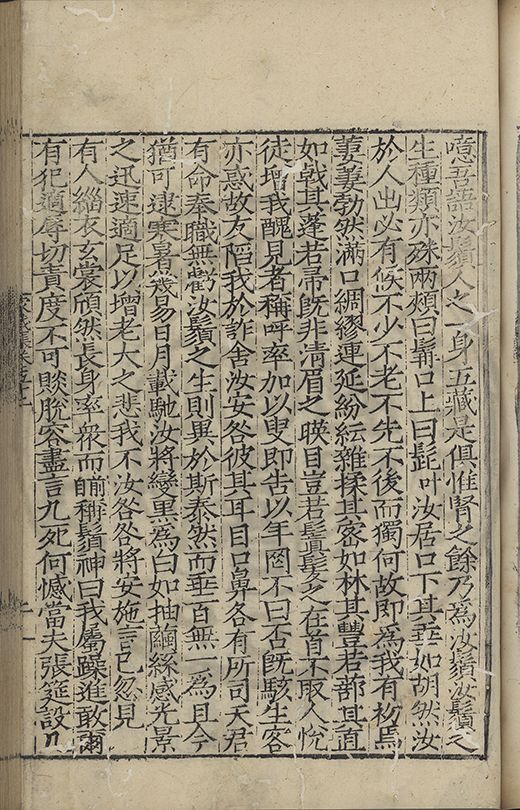 噫吾語汝鬚人之一身五藏是俱惟腎之餘乃爲汝鬚汝鬚之
生種類亦殊兩頰曰髥口上曰髭叶汝居口下其垂如胡然汝
於人出必有候不少不老不先不後而獨何故即爲我有初焉
萋萋勃然滿口綢繆連延紛紜雜揉其密如林其豐若蔀其直
如戟其蓬若帚旣非淸眉之暎目豈若鬒髮之在首不取人悅
徒增我醜見者稱呼率加以叟即告以年罔不曰否旣駭生客
亦惑故友䧟我於詐舍汝安咎彼其耳目口鼻各有所司天君
有命奉職無虧汝鬚之生則異於斯泰然而垂百無一爲且今
猶可逮寒暑幾易日月載馳汝將變黑爲白如抽繭絲感光景
之迅速適足以增老大之悲我不汝咎咎將安施言已忽見
有人緇衣玄裳頎然長身率衆而前稱鬚神曰我屬躁進敢爾
有犯適辱切責度不可賧脫容盡言九死何憾當夫張筵設几